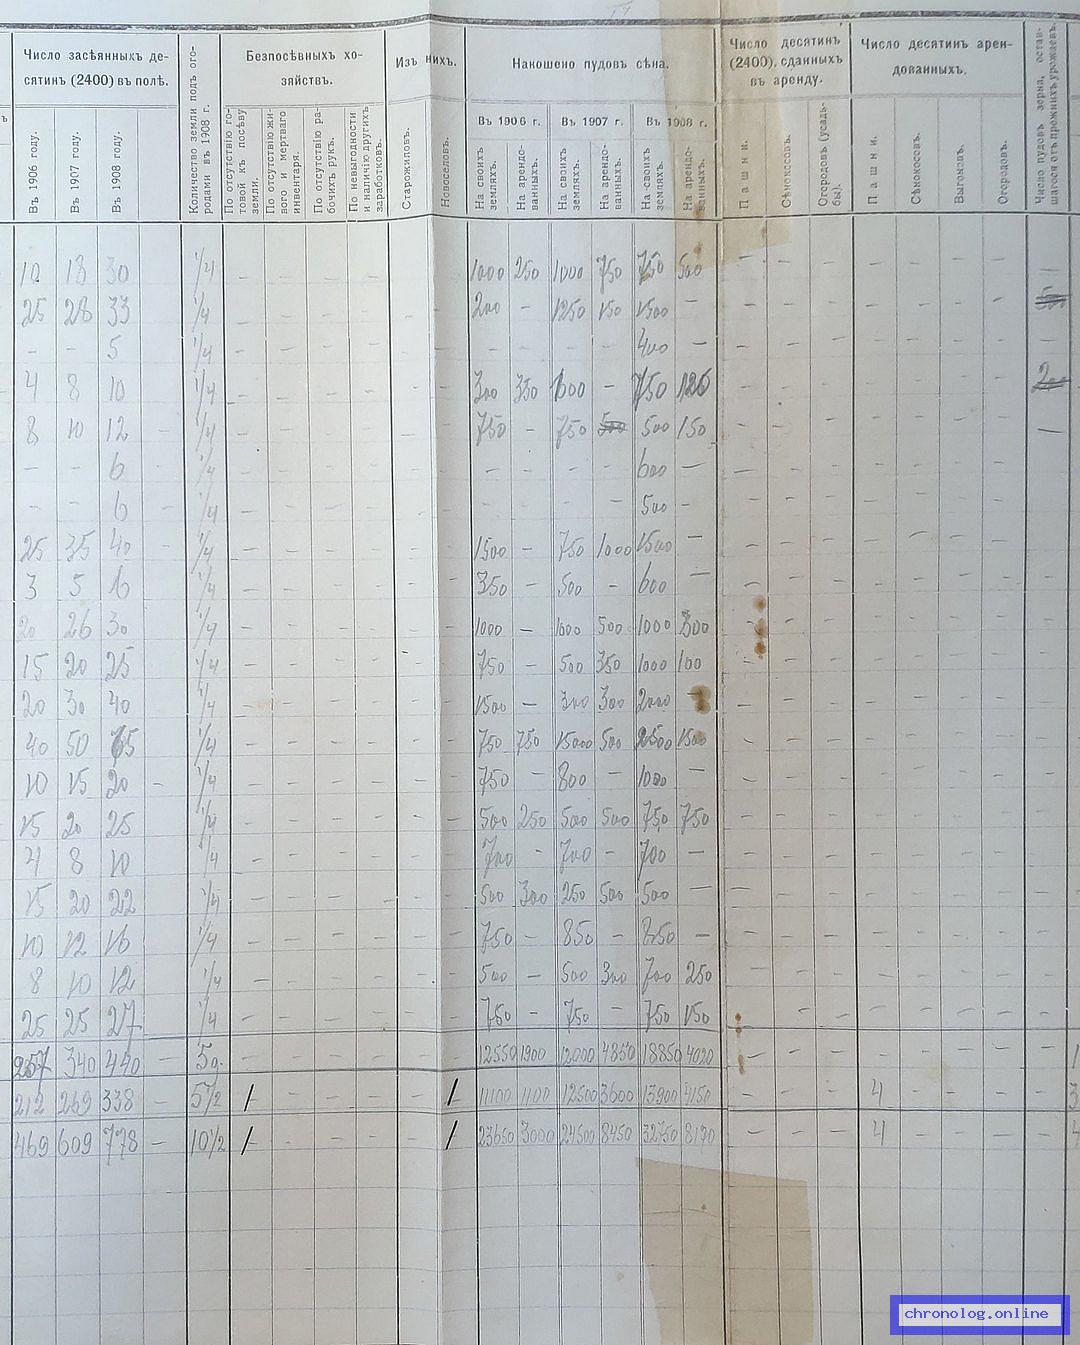 Число засѣянныхъ де-
сятинъ (2400) въ полѣ.
Въ 1906 году.
Въ 1907 году.
Въ 1908 году.
Количество земли подъ ого-
родами въ 1908 г.
Безпосѣвныхъ хо-
зяйствъ.
По отсутствію го-
товой къ посѣву
земли.
По отсутствію жи-
вого и мертваго
инвентаря.
По отсутствію ра-
бочихъ рукъ.
По невыгодности
и наличію другихъ
заработковъ.
Изъ нихъ.
Старожиловъ.
Новоселовъ.
Накошено пудовъ сѣна.
Въ 1906 г.
Въ 1907 г.
Въ 1908 г.
На своихъ
земляхъ.
На арендо-
ванныхъ.
На своихъ
земляхъ.
На арендо-
ванныхъ.
На своихъ
земляхъ.
На арендо-
ванныхъ.
Число десятинъ
(2400), сданныхъ
въ аренду.
Пашни.
Сѣнокосовъ.
Огородовъ (усадь-
бы).
Число десятинъ арен-
дованныхъ.
Пашни.
Сѣнокосовъ.
Выгоновъ.
Огородовъ.
Число пудовъ зерна, остав-
шагося отъ прежнихъ урожаевъ.
10 18 30 1/4 – – – – – – 1000 250 1000 750 750 500 – – – – – – –
25 28 33 1/4 – – – – – – 200 – 1250 150 1500 – – – – – – – –
– – 5 1/4 – – – – – – – – – – 400 – – – – – – – – –
4 8 10 1/4 – – – – – – 300 350 600 – 750 126 – – – – – – –
8 10 12 – 1/4 – – – – – – 750 – 750 500 500 150 – – – – – – –
– – 6 – 1/4 – – – – – – – – – – 600 – – – – – – – –
– – 6 – 1/4 – – – – – – – – – – 500 – – – – – – – –
25 35 40 – 1/4 – – – – – – 1500 – 750 1000 1500 – – – – – – – –
3 5 6 1/4 – – – – – – 350 – 500 – 600 – – – – – – – –
20 26 30 1/4 – – – – – – 1000 – 1000 500 1000 300 – – – – – – –
15 20 25 1/4 – – – – – – 750 – 500 350 1000 100 – – – – – – –
20 30 40 1/4 – – – – – – 1500 – 300 300 2000 – – – – – – – –
40 50 75 1/4 – – – – – – 750 750 15000 500 2500 1500 – – – – – – –
10 15 20 – 1/4 – – – – – – 750 – 800 – 1000 – – – – – – – –
15 20 25 1/4 – – – – – – 500 250 500 500 750 750 – – – – – – –
4 8 10 1/4 – – – – – – 700 – 700 – 700 – – – – – – – –
15 20 22 1/4 – – – – – – 500 300 250 500 500 – – – – – – – –
10 12 16 1/4 – – – – – – 750 – 850 – 850 – – – – – – – –
8 10 12 1/4 – – – – – – 500 – 500 300 700 250 – – – – – – –
25 25 27 1/4 – – – – – – 750 – 750 – 750 150 – – – – – – –
257 340 440 – 50. – – – – – – 12550 1900 12000 4850 18850 4020 – – – – – – – –
212 269 338 – 5 1/2 1 – – – – 1 11100 1100 12500 3600 13900 4150 – – – 4 – – – –
469 609 778 – 10 1/2 1 – – – – 1 23650 3000 24500 8450 32750 8170 – – – 4 – – – –
chronolog.online